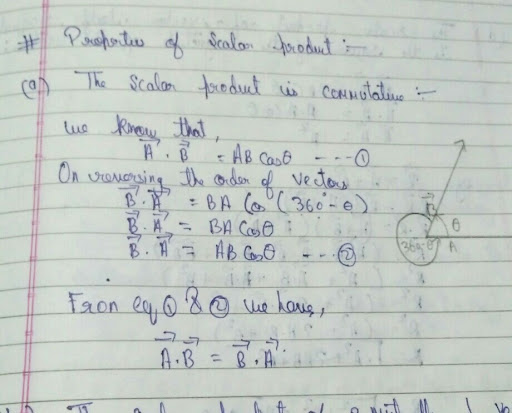 # Properties of Scalar product :-
(a) The Scalar product is commutative :-
we know that,
A⃗ . B⃗ = AB cosθ ---- ①
On reversing the order of vectors
B⃗ . A⃗ = BA Cos (360° - θ)
B⃗ . A⃗ = BA cosθ
B⃗ . A⃗ = AB cosθ --- ②
B⃗
θ
360°-θ A
From eq ① & ② we have,
A⃗ . B⃗ = B⃗ . A⃗